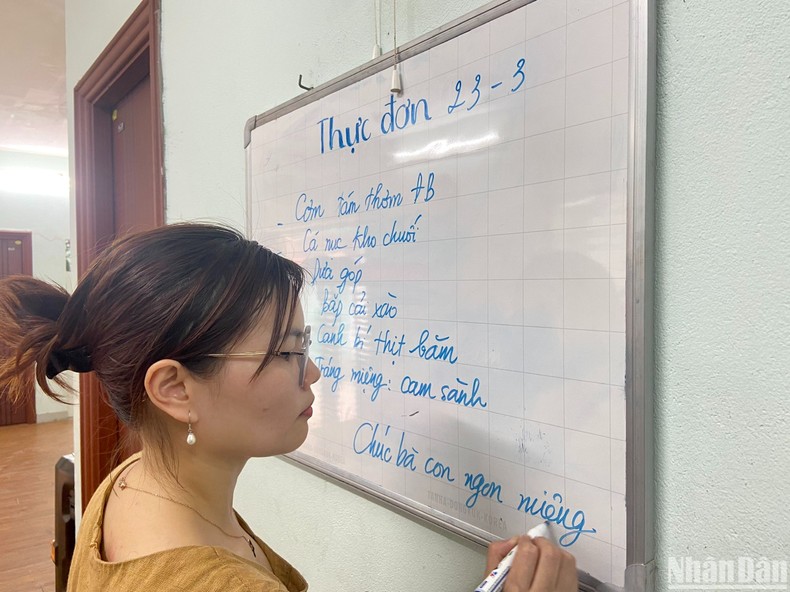 Thực đơn 23-3
- Cơm tấm thơm ĐB
Cá nục kho chuối
Dưa góp
bắp cải xào
Canh bí thịt băm
Tráng miệng: cam sành
Chúc bà con ngon miệng
NhânDân